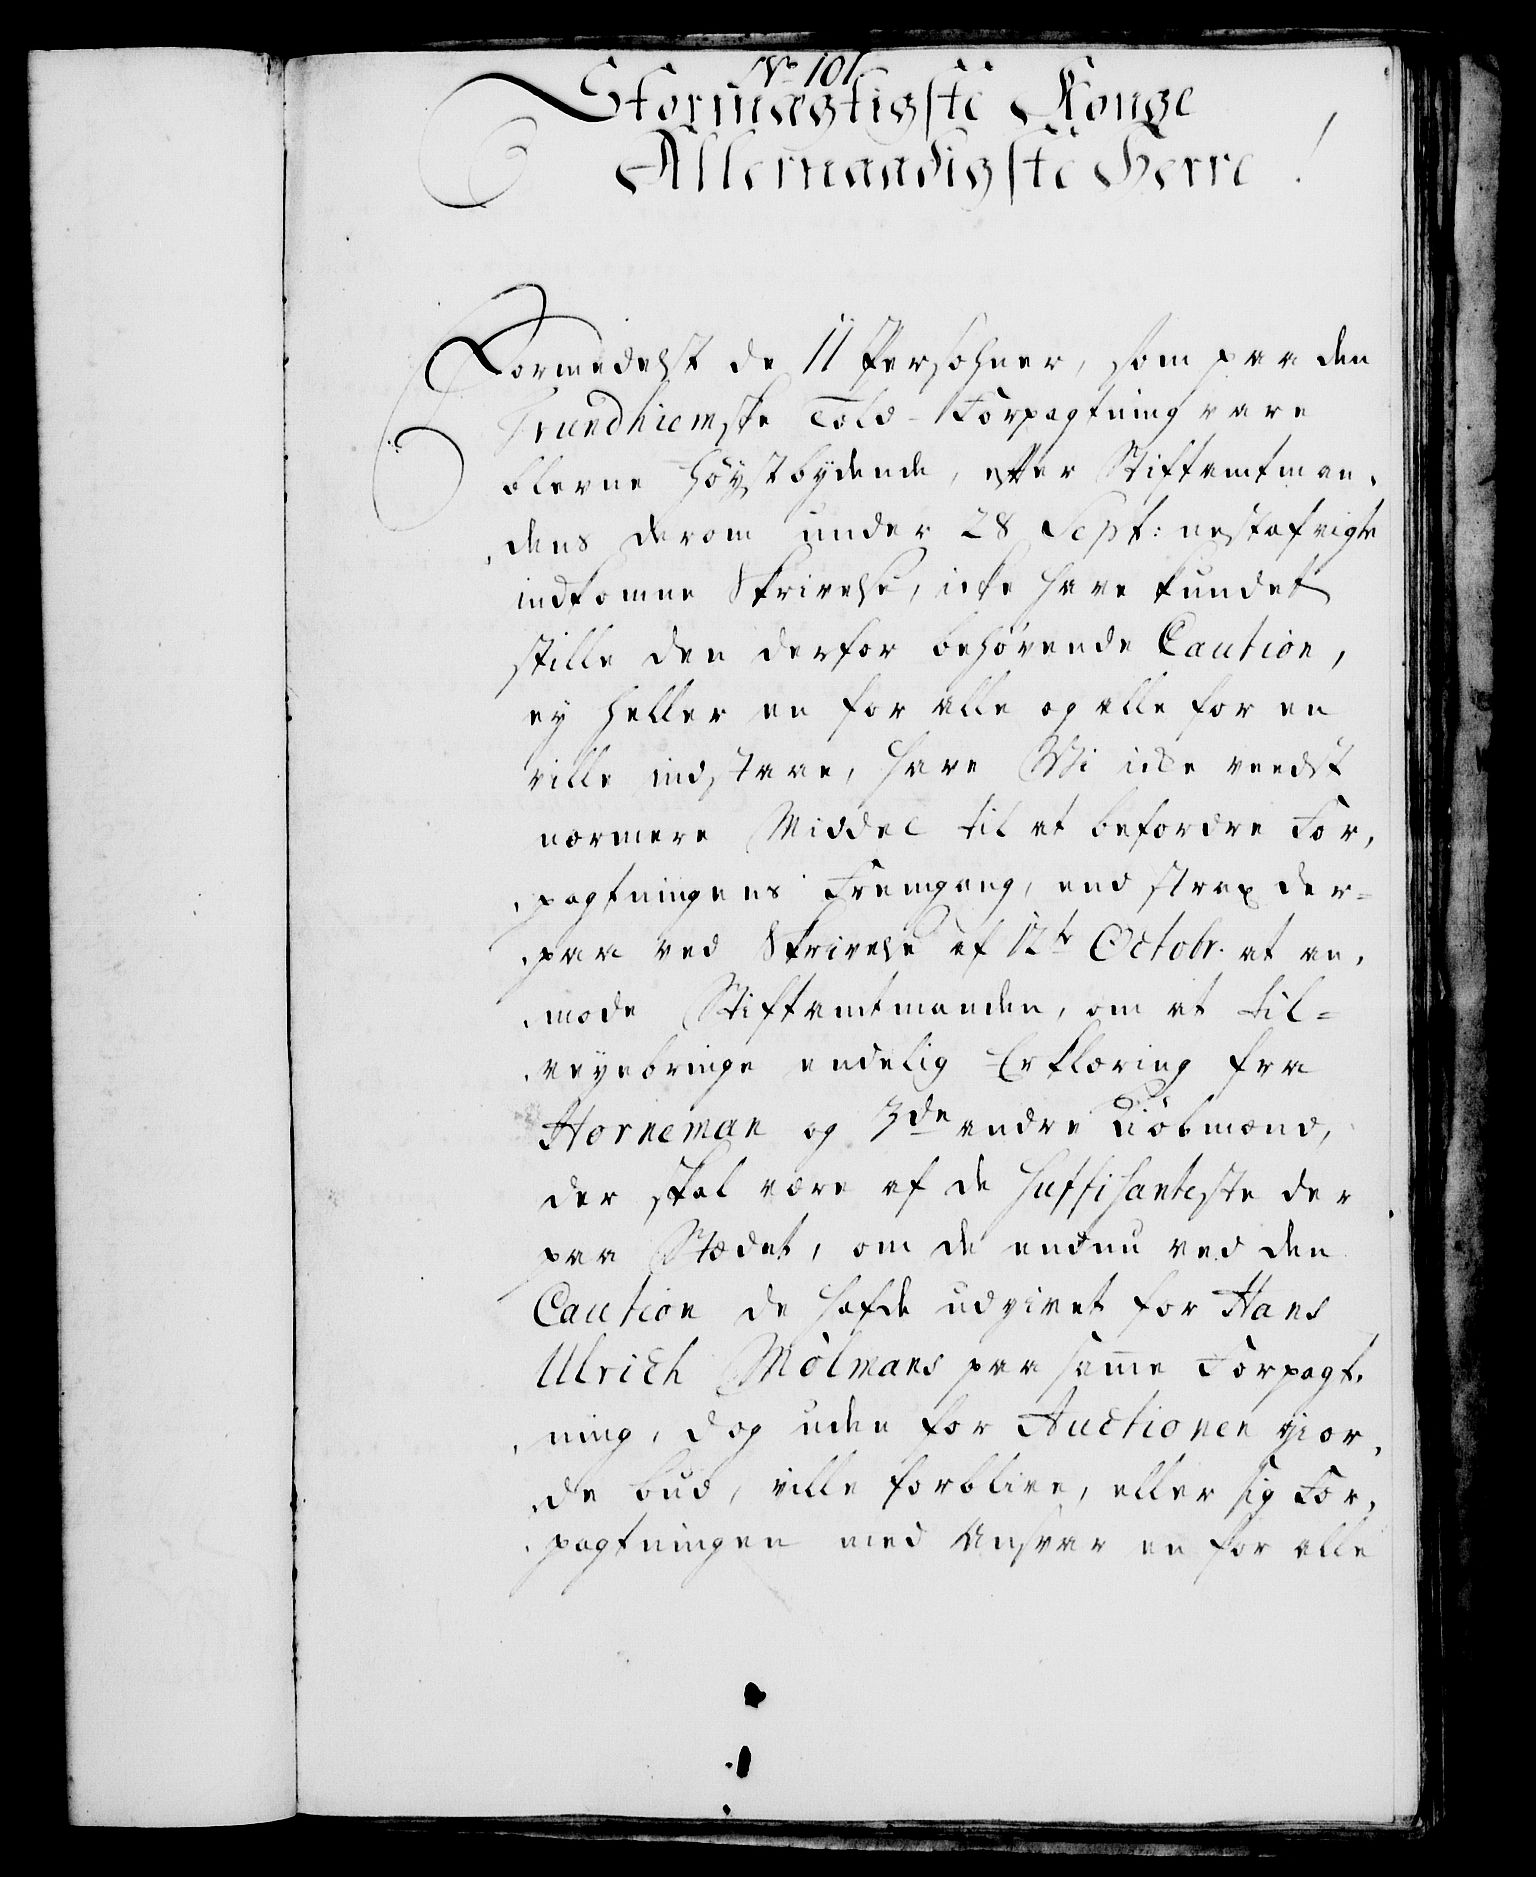 No 101.
Stormægtigste Konge
Allernaadigste Herre!
Formedelst de 11 Persohner, som paa den
Trundhiemske Told-Forpagtning vare
blevne høystbydende, efter Stiftamtman-
dens derom under 28 Sept: nestafvigte
indkomne Skrivelse, icke have kundet
stille den derfor behørende Caution,
ey heller en for alle og alle for en
ville indstaae, have Wi icke veedst
nærmere Middel til at befordre For-
pagtningens Fremgang, end strax der-
paa ved Skrivelse af 12te Octobr. at an-
mode Stiftamtmanden, om at til-
veyebringe endelig Erklæring fra
Horneman og 3de andre Kiøbmænd,
der skal være af de suffisanteste der
paa Stædet, om de endnu ved den
Caution de hafde udgivet for Hans
Ulrich Mølmans paa samme Forpagt-
ning, dog uden for Auctionen gior-
de bud, ville forblive, eller sig For-
pagtningen med Ansvar en for alle